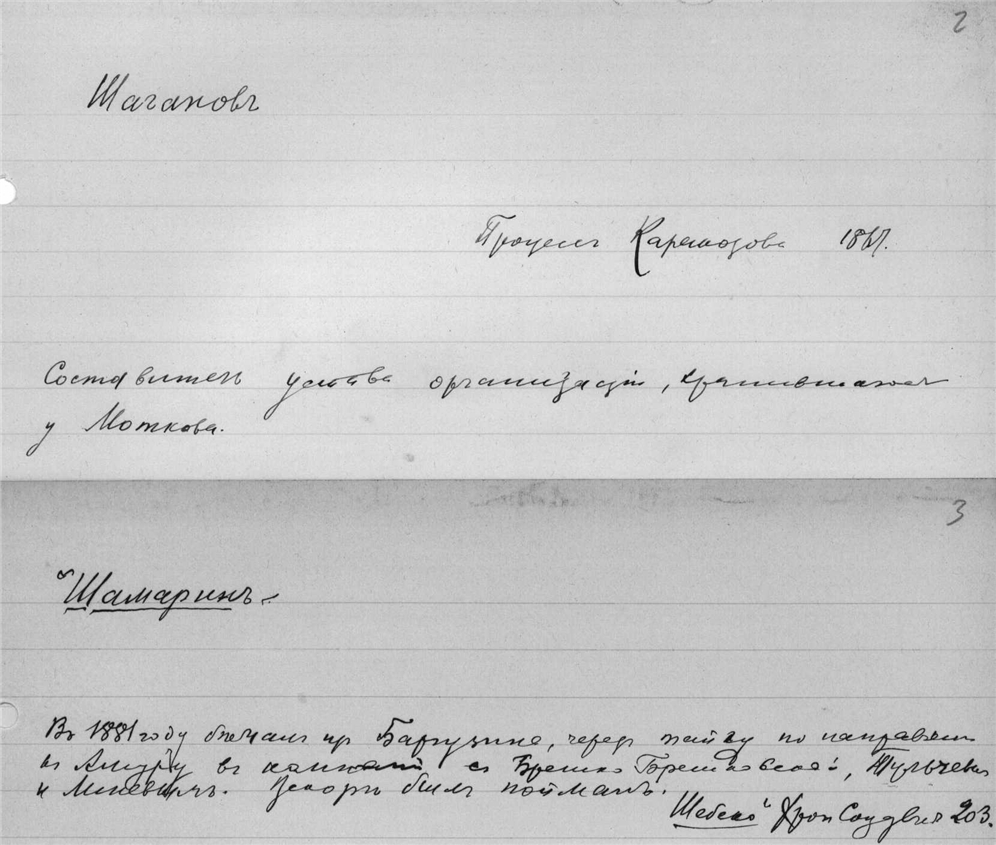 2
Шагановъ
Процессъ Каракозова 186 г.
Составитель устава организаціи, хранившагося
у Моткова.
3
"Шамаринъ"
Въ 1881 году бѣжалъ из Баргузина, через тайгу по направлен
къ Амуру въ компаніи съ Брешко Брешковской, Тулъчевъ
и Линевымъ. Вскорѣ былъ пойманъ.
Шебеко" Хрон Соц движ 203.